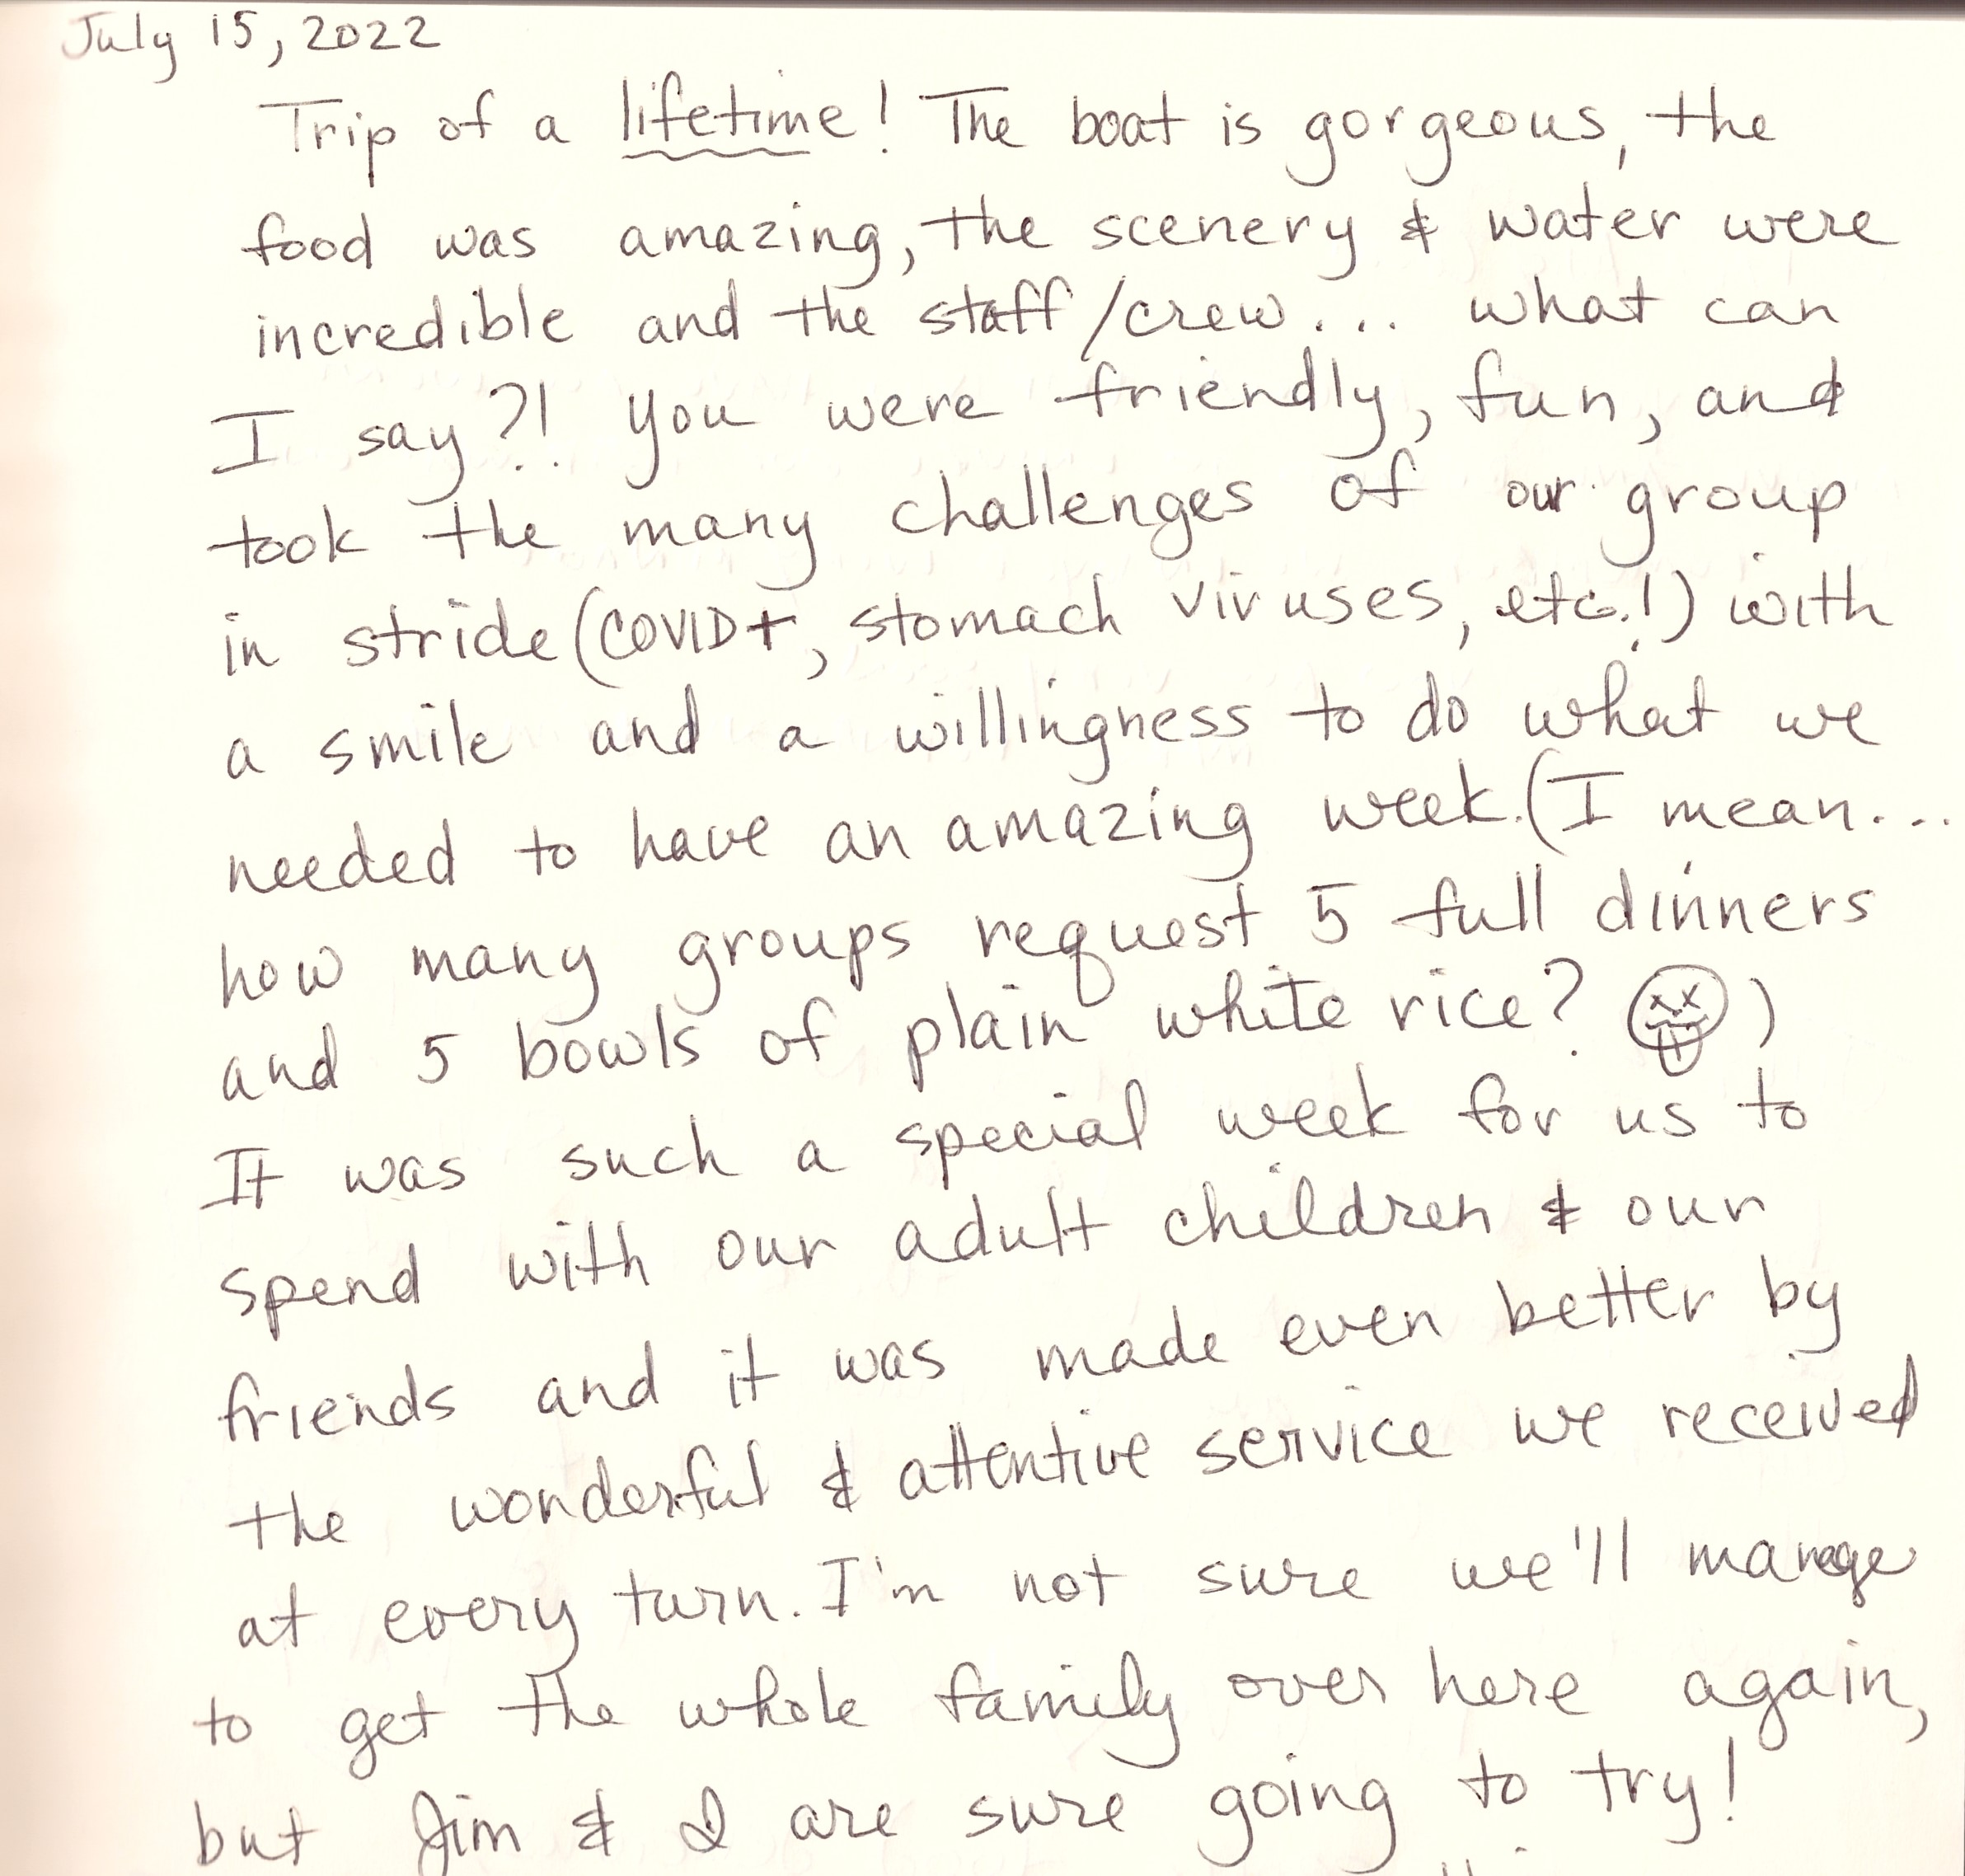 July 15, 2022
Trip of a lifetime! The boat is gorgeous, the
food was amazing, the scenery & water were
incredible and the staff/crew... what can
I say?! you were friendly, fun, and
took the many challenges of our group
in stride (COVID+, stomach viruses, etc.!) with
a smile and a willingness to do what we
needed to have an amazing week. (I mean...
how many groups request 5 full dinners
and 5 bowls of plain white rice? )
It was such a special week for us to
spend with our adult children & our
friends and it was made even better by
the wonderful & attentive service we received
at every turn. I'm not sure we'll manage
to get the whole family over here again,
but Jim & I are sure going to try!